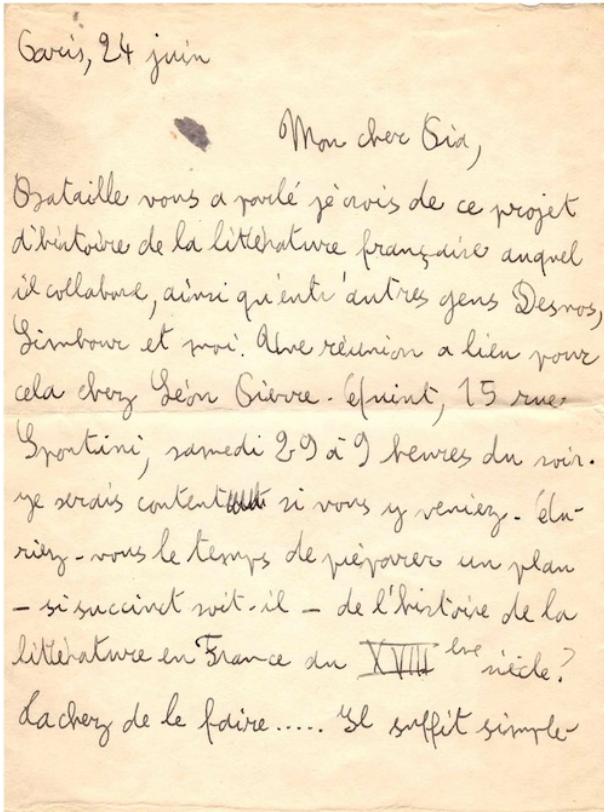 Paris, 24 juin
Mon cher Pia,
Bataille vous a parlé je crois de ce projet
d'histoire de la littérature française auquel
il collabore, ainsi qu'entr'autres gens Desnos,
Limbour et moi. Une réunion a lieu pour
cela chez Léon Pierre-Quint, 15 rue
Spontini, samedi 29 à 9 heures du soir.
Je serais content si vous y veniez. Au-
riez-vous le temps de préparer un plan
– si succinct soit-il – de l'histoire de la
littérature en France du XVIII ème siècle?
Tachez de le faire..... Il suffit simple-